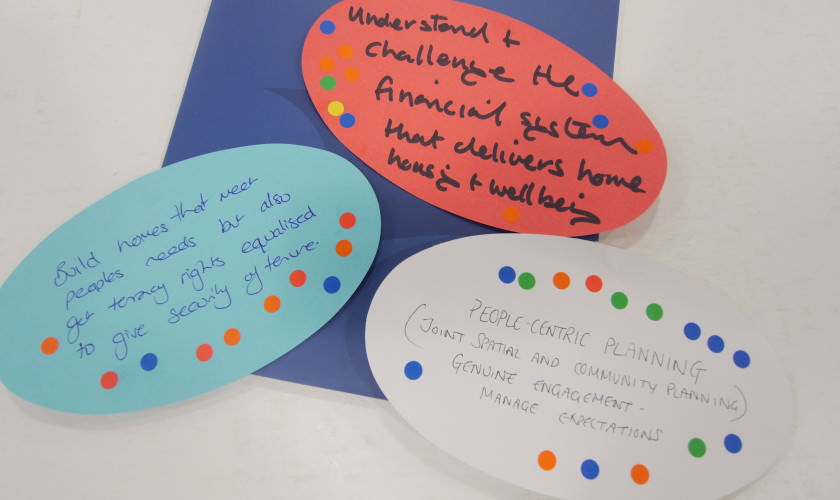 Understand +
Challenge the
financial system
that delivers home
housing + wellbeing
Build homes that meet
peoples needs but also
get tenancy rights equalised
to give security of tenure.
PEOPLE-CENTRIC PLANNING
(JOINT SPATIAL AND COMMUNITY PLANNING)
GENUINE ENGAGEMENT -
MANAGE EXPECTATIONS